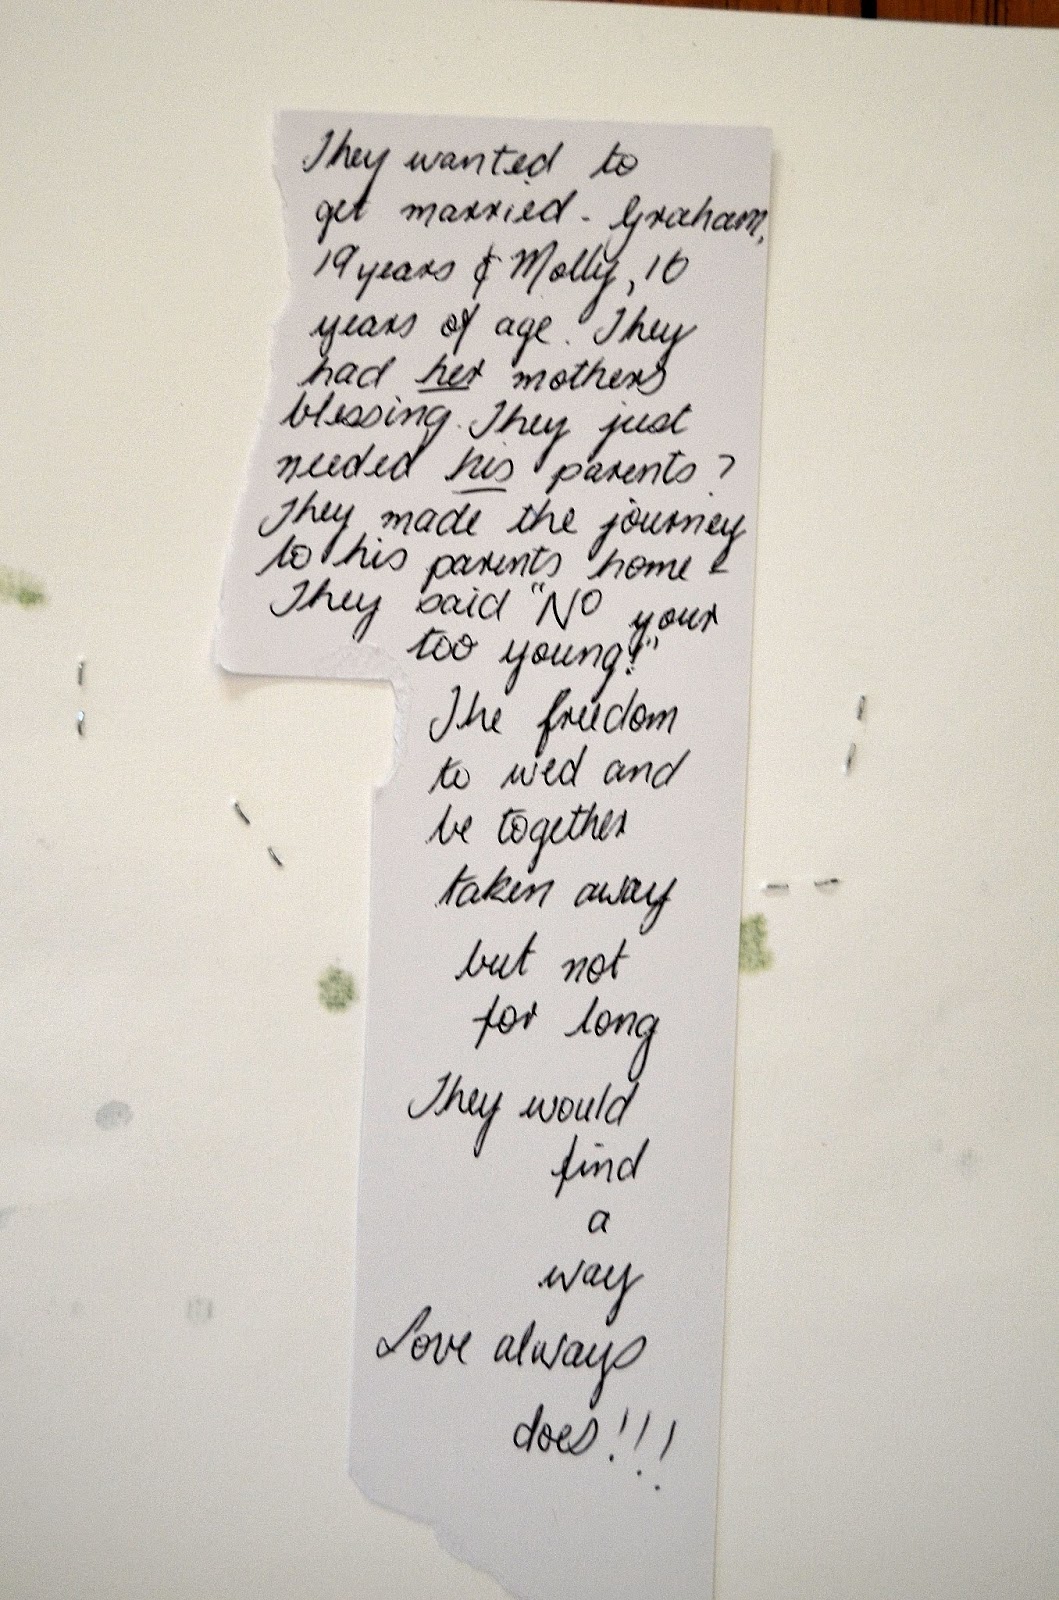 They wanted to
get married - Graham,
19 years & Molly, 16
years of age. They
had her mothers
blessing. They just
needed his parents?
They made the journey
to his parents home -
They said "No your
too young!"
The freedom
to wed and
be together
taken away
but not
for long
They would
find
a
way
Love always
does!!!